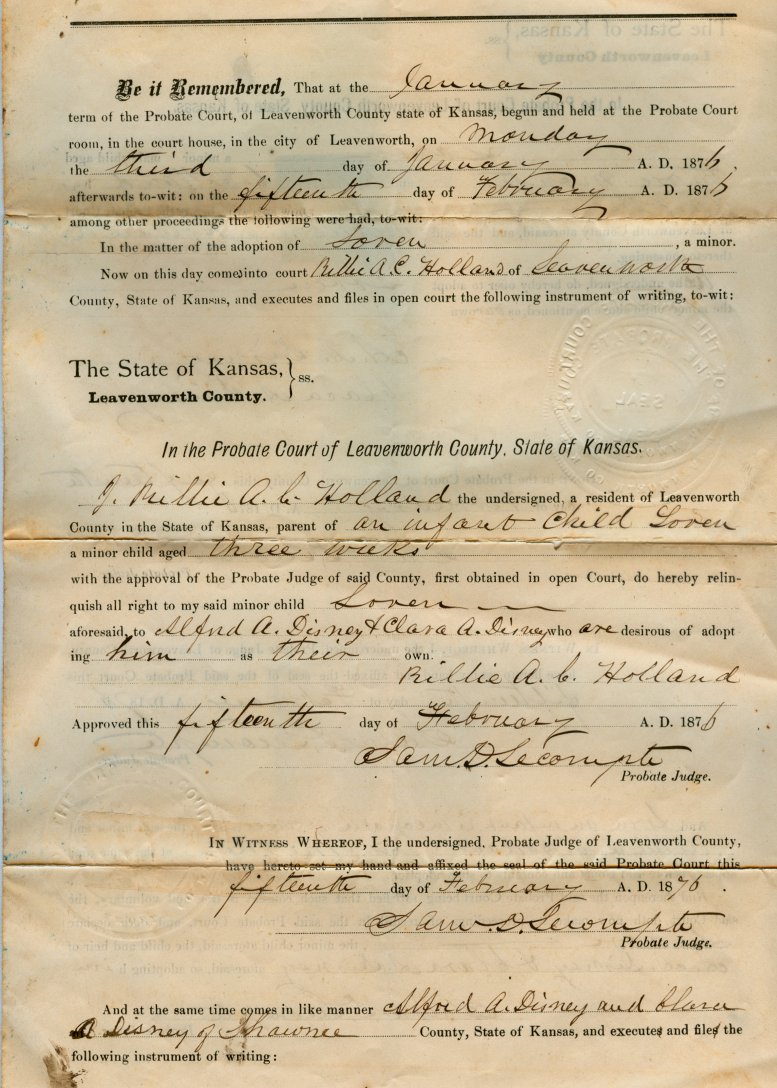 Be it Remembered, That at the January
term of the Probate Court, of Leavenworth County state of Kansas, begun and held at the Probate Court
room, in the court house, in the city of Leavenworth, on Monday
the third day of January A. D. 1876.
afterwards to-wit: on the fifteenth day of February A. D. 1876
among other proceedings the following were had, to-wit:
In the matter of the adoption of Loren, a minor.
Now on this day comes into court Rillie A. C. Holland of Leavenworth
County, State of Kansas, and executes and files in open court the following instrument of writing, to-wit:
The State of Kansas, } ss.
Leavenworth County.
In the Probate Court of Leavenworth County, State of Kansas.
I. Rillie A. C. Holland the undersigned, a resident of Leavenworth
County in the State of Kansas, parent of an infant Child Loren
a minor child aged three weeks
with the approval of the Probate Judge of said County, first obtained in open Court, do hereby relin-
quish all right to my said minor child Loren
aforesaid, to Alfred A. Disney & Clara A. Disney who are desirous of adopt
ing him as their own.
Rillie A. C. Holland
Approved this fifteenth day of February A. D. 1876
Sam. D. Lecompte
Probate Judge.
In Witness Whereof, I the undersigned, Probate Judge of Leavenworth County,
have hereto set my hand and affixed the seal of the said Probate Court this
fifteenth day of February A. D. 1876.
Sam. D. Lecompte
Probate Judge.
And at the same time comes in like manner Alfred A. Disney and Clara
A Disney of Shawnee County, State of Kansas, and executes and files the
following instrument of writing: